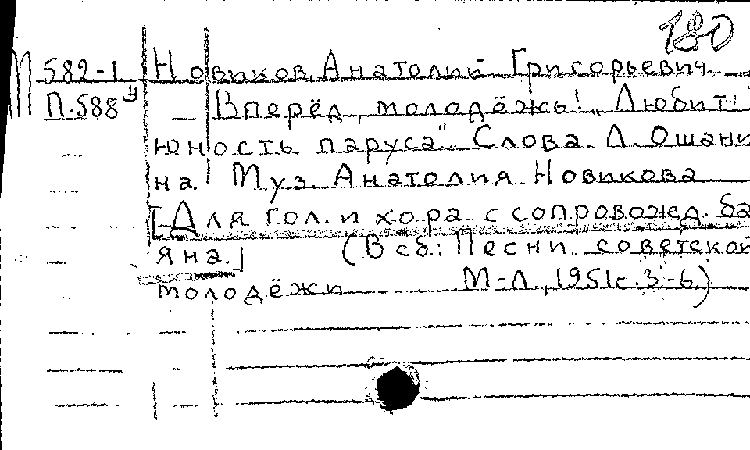 180
М 582-1 Новиков, Анатолий Григорьевич.
П.588 Вперёд, молодёжь! „Любит
юность паруса". Слова Л. Ошани
на. Муз. Анатолия Новикова
[Для гол. и хора с сопровожд. ба
яна.] (В сб.: Песни советской
молодёжи М-Л, 1951г. 3-6.)